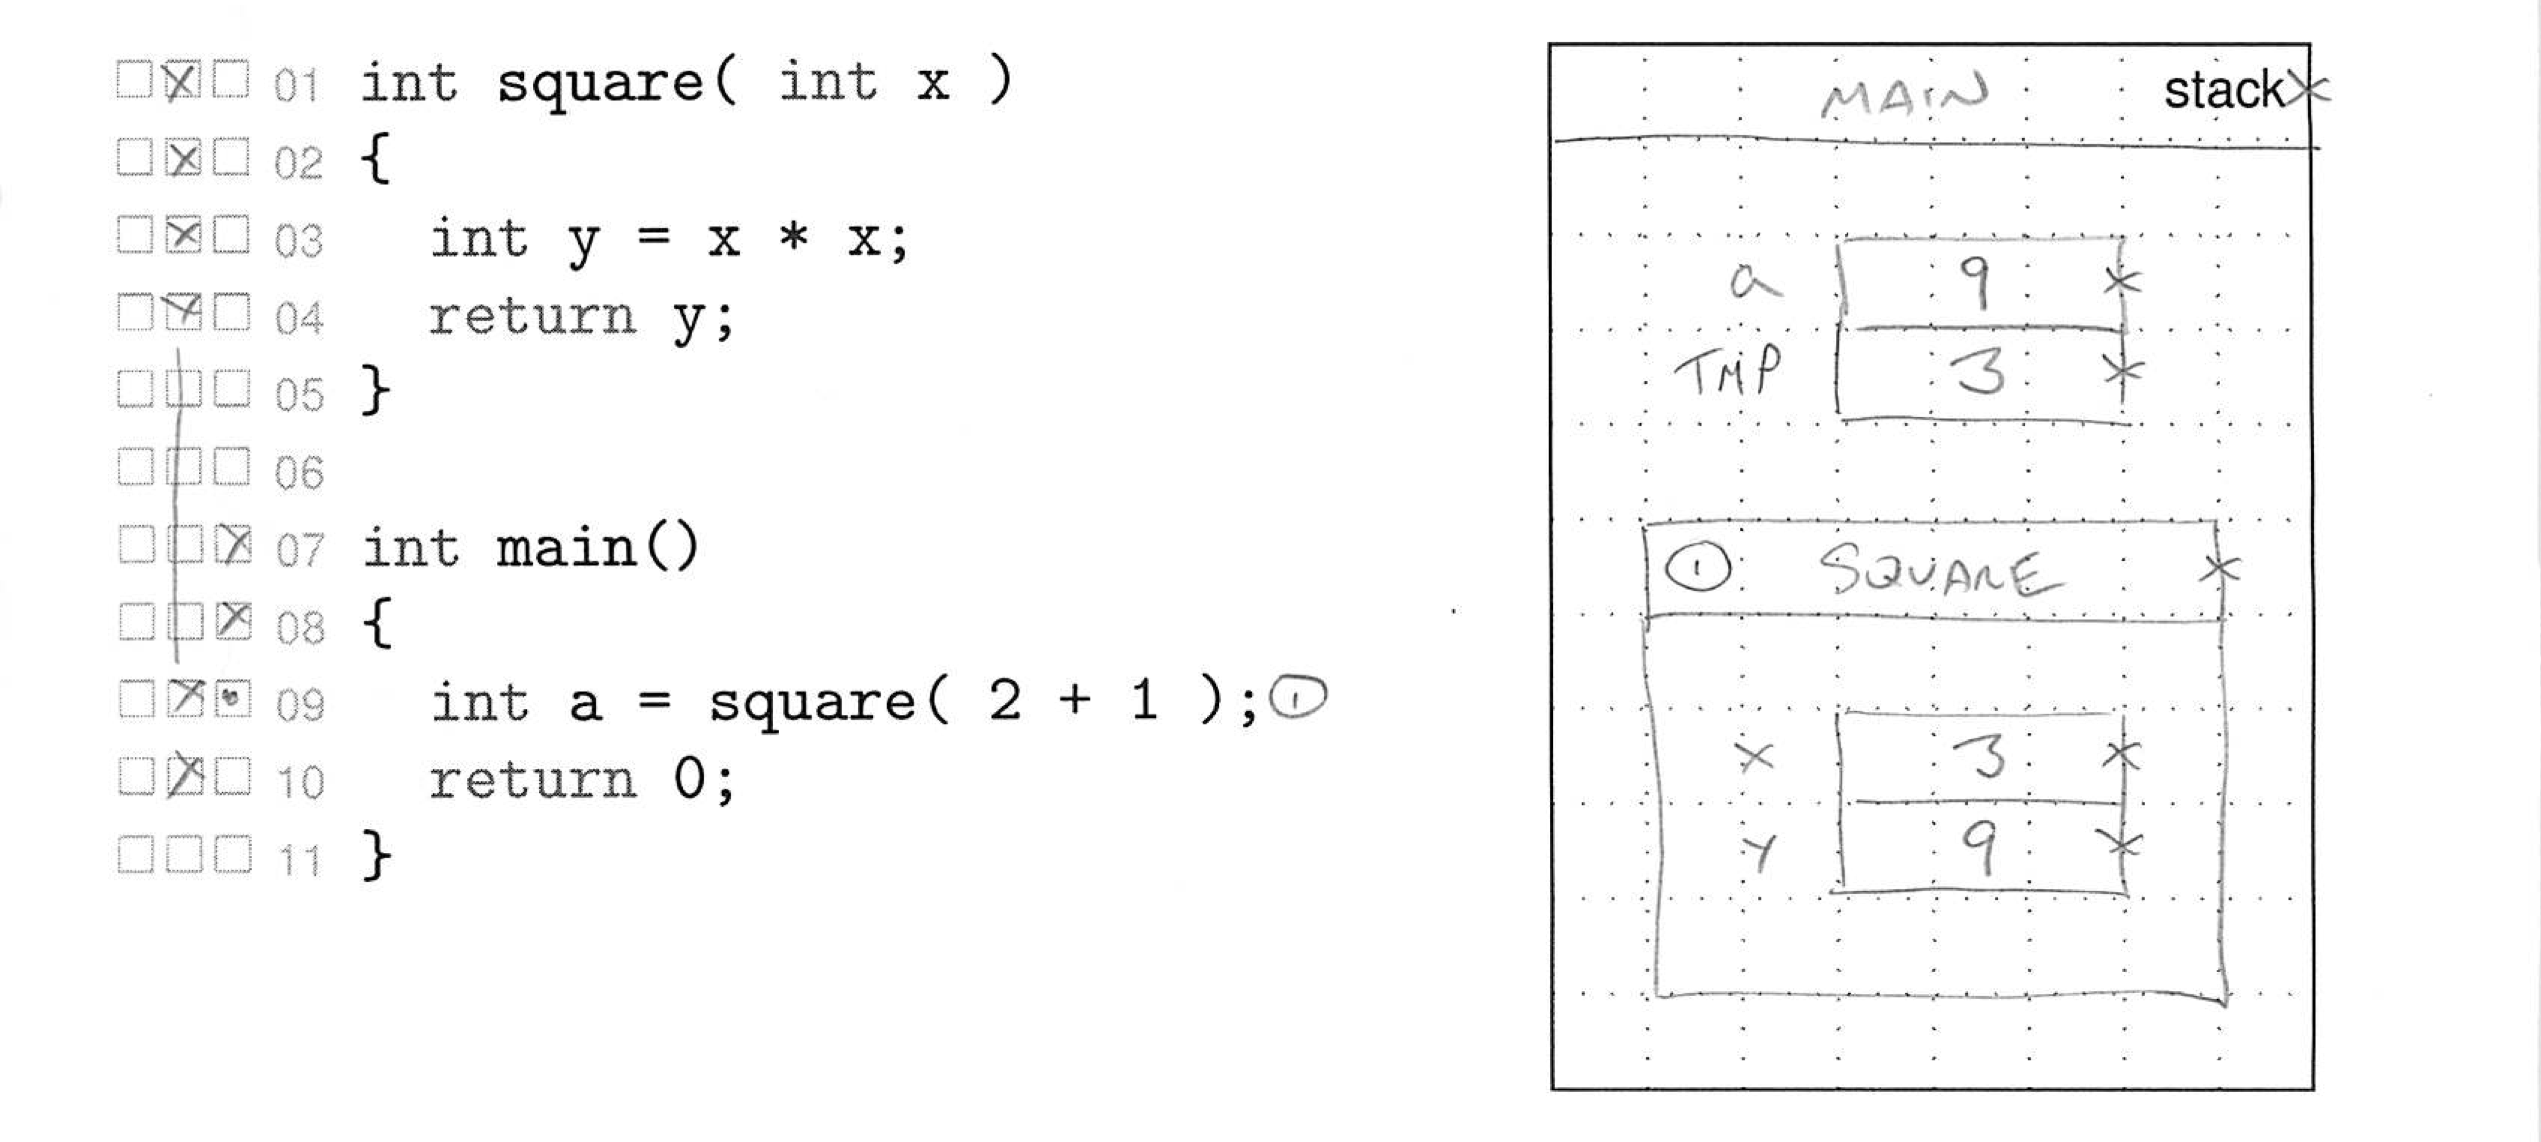 01 int square( int x )
02 {
03   int y = x * x;
04   return y;
05 }
06
07 int main()
08 {
09   int a = square( 2 + 1 ); ①
10   return 0;
11 }
MAIN stack
a 9
TMP 3
① SQUARE
x 3
y 9